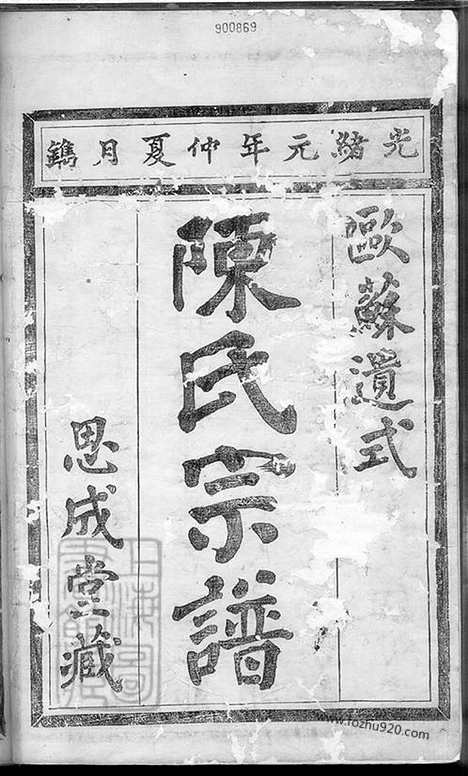 900869
光緒元年仲夏月鐫
歐蘇遺式
陳氏宗譜
思成堂藏
www.fozhu920.com